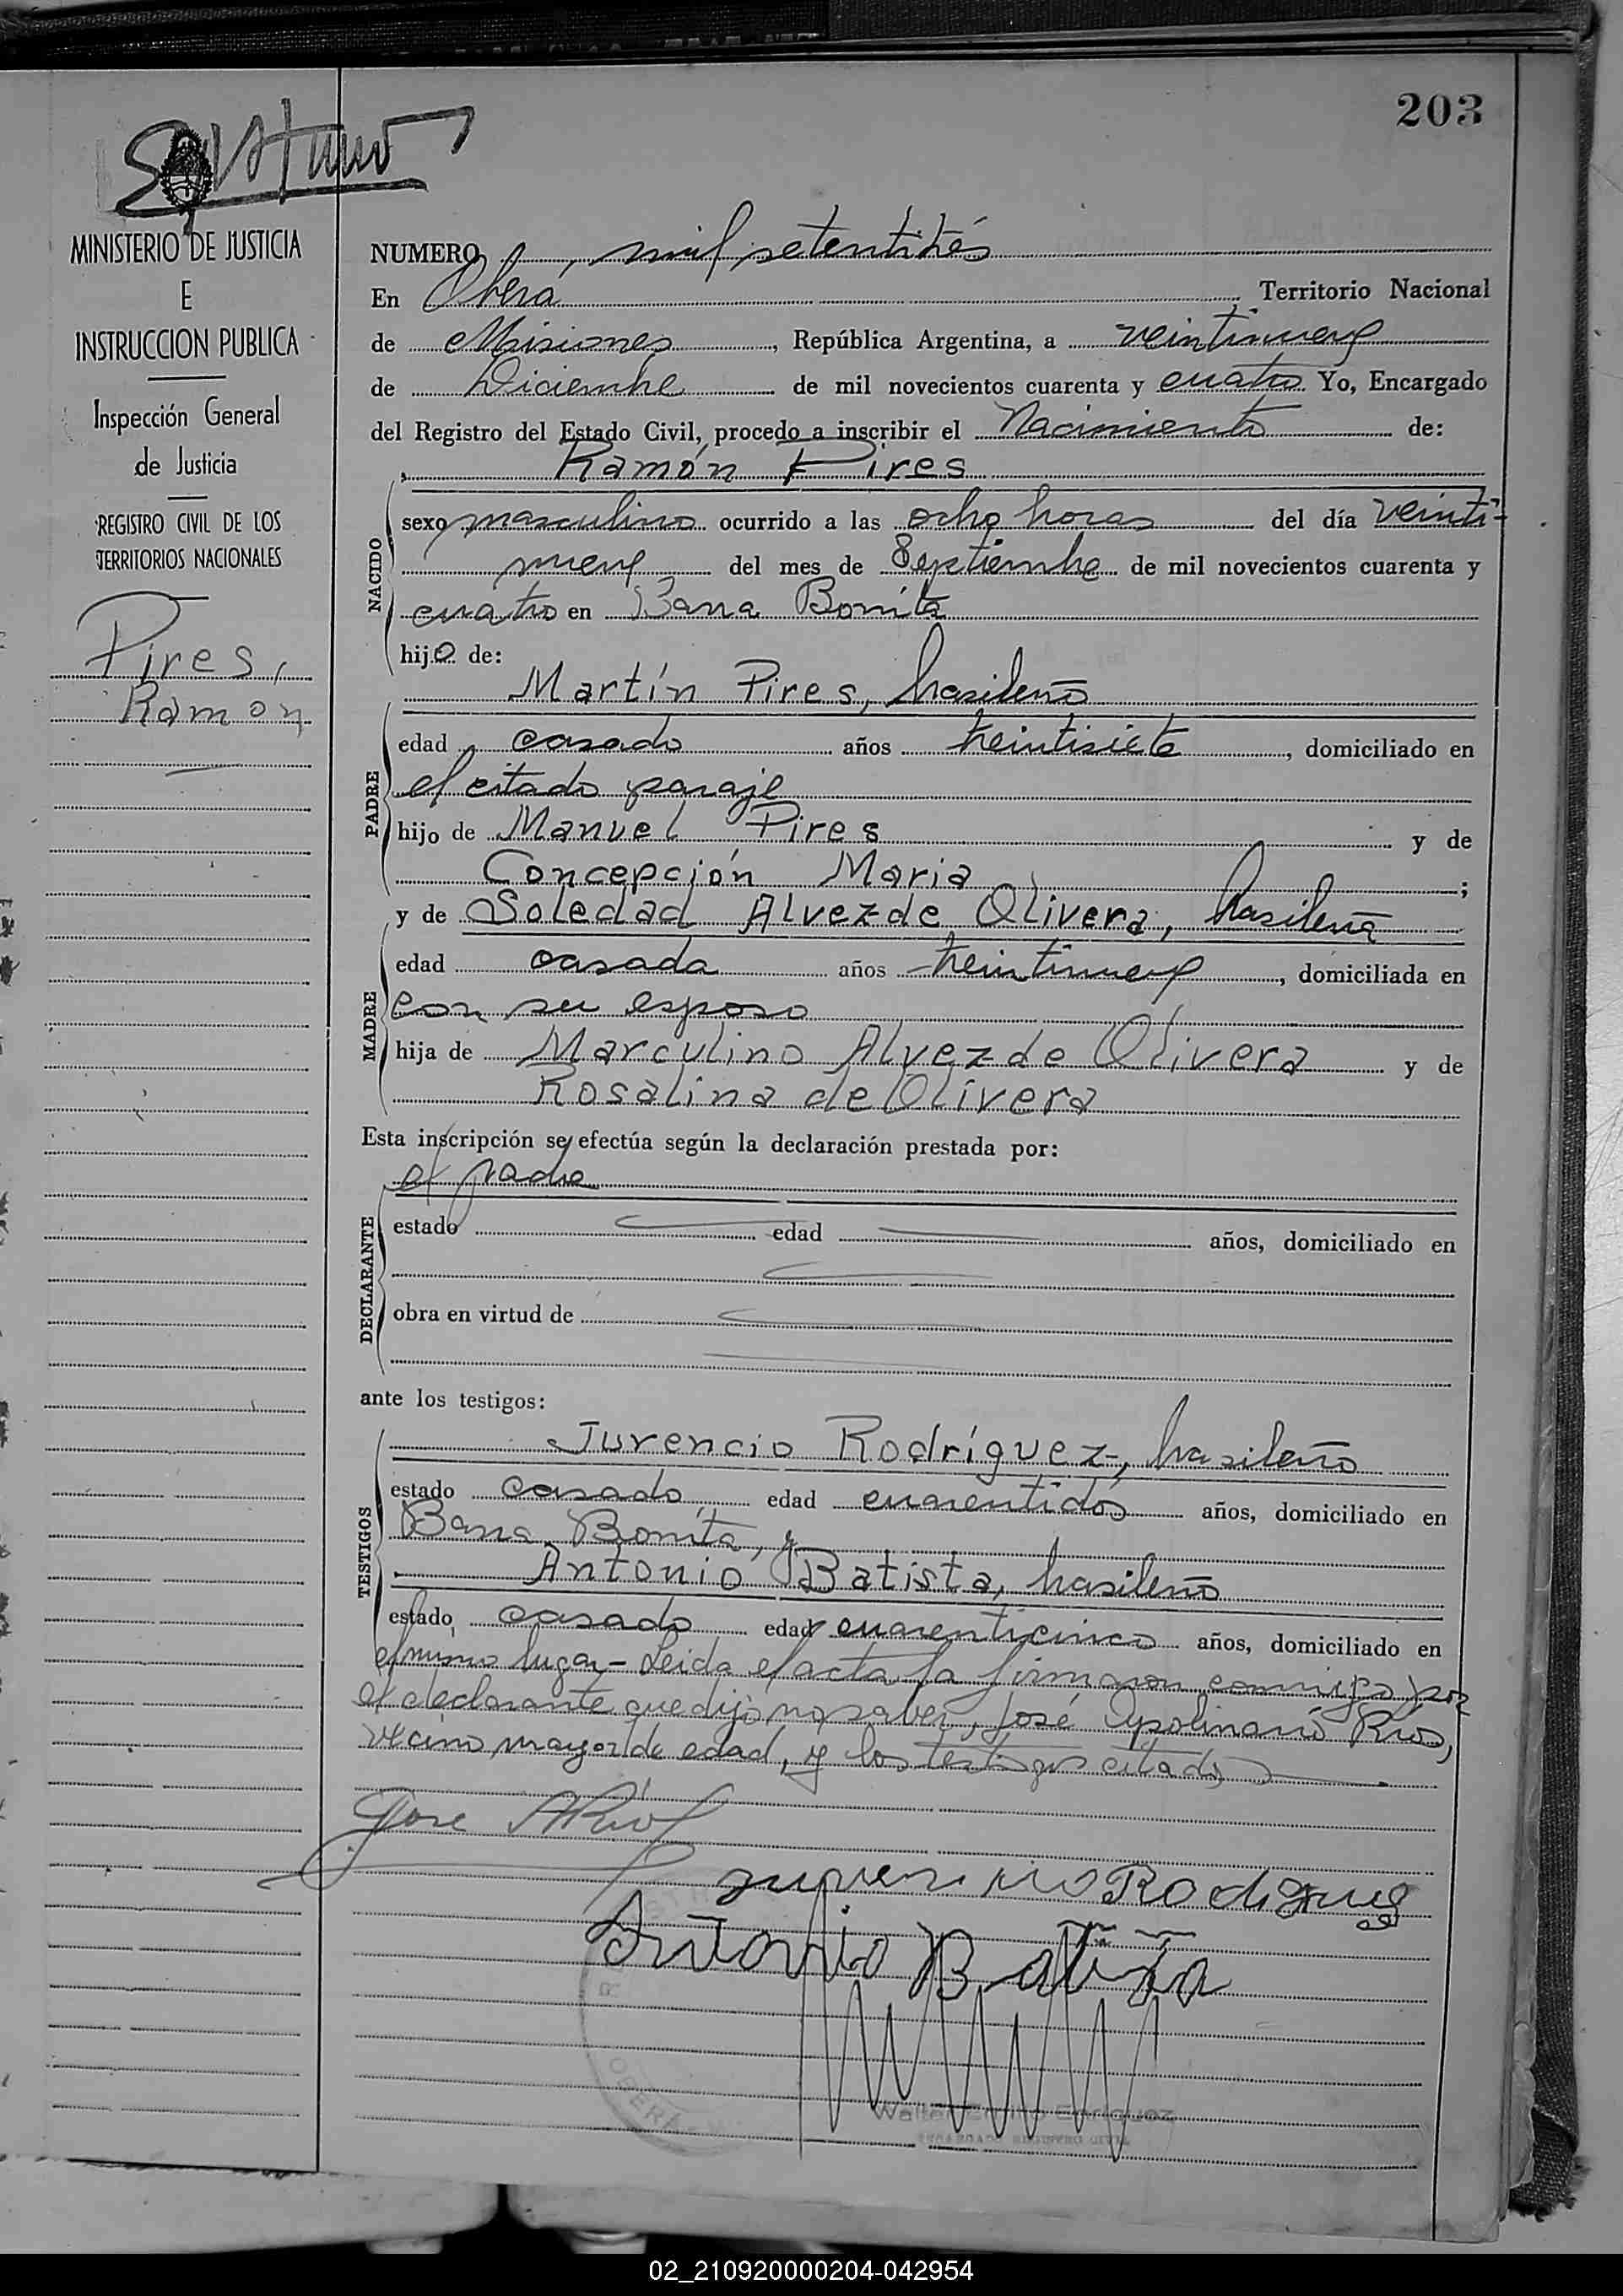 203
MINISTERIO DE JUSTICIA
E
INSTRUCCION PUBLICA
Inspección General
de Justicia
REGISTRO CIVIL DE LOS
TERRITORIOS NACIONALES
Pires,
Ramón
NUMERO, mil setentitrés
En Oberá, Territorio Nacional
de Misiones, República Argentina, a veintinueve
de Diciembre de mil novecientos cuarenta y cuatro Yo, Encargado
del Registro del Estado Civil, procedo a inscribir el Nacimiento de:
Ramón Pires
NACIDO
sexo masculino ocurrido a las ocho horas del día veinti-
nueve del mes de Septiembre de mil novecientos cuarenta y
cuatro en Barra Bonita
hijo de:
Martín Pires, brasileño
PADRE
edad casado años treintisiete, domiciliado en
el citado paraje
hijo de Manuel Pires y de
Concepción Maria;
y de Soledad Alvez de Olivera, brasileña
MADRE
edad casada años treintinueve, domiciliada en
con su esposo
hija de Marculino Alvez de Olivera y de
Rosalina de Olivera
Esta inscripción se efectúa según la declaración prestada por:
el padre
DECLARANTE
estado edad años, domiciliado en
obra en virtud de
ante los testigos:
TESTIGOS
Juvencio Rodríguez, brasileño
estado casado edad cuarentidós años, domiciliado en
Barra Bonita, y
Antonio Batista, brasileño
estado casado edad cuarenticinco años, domiciliado en
el mismo lugar - Leida el acta la firmaron conmigo por
el declarante que dijo no saber, José Apolinario Ríos,
vecino mayor de edad, y los testigos citados
Jose A Rios
Juvencino Rodigues
Antonio Batista
OBERA
Walter Emilio Enriquez
ENCARGADO REGISTRO CIVIL
02_210920000204-042954